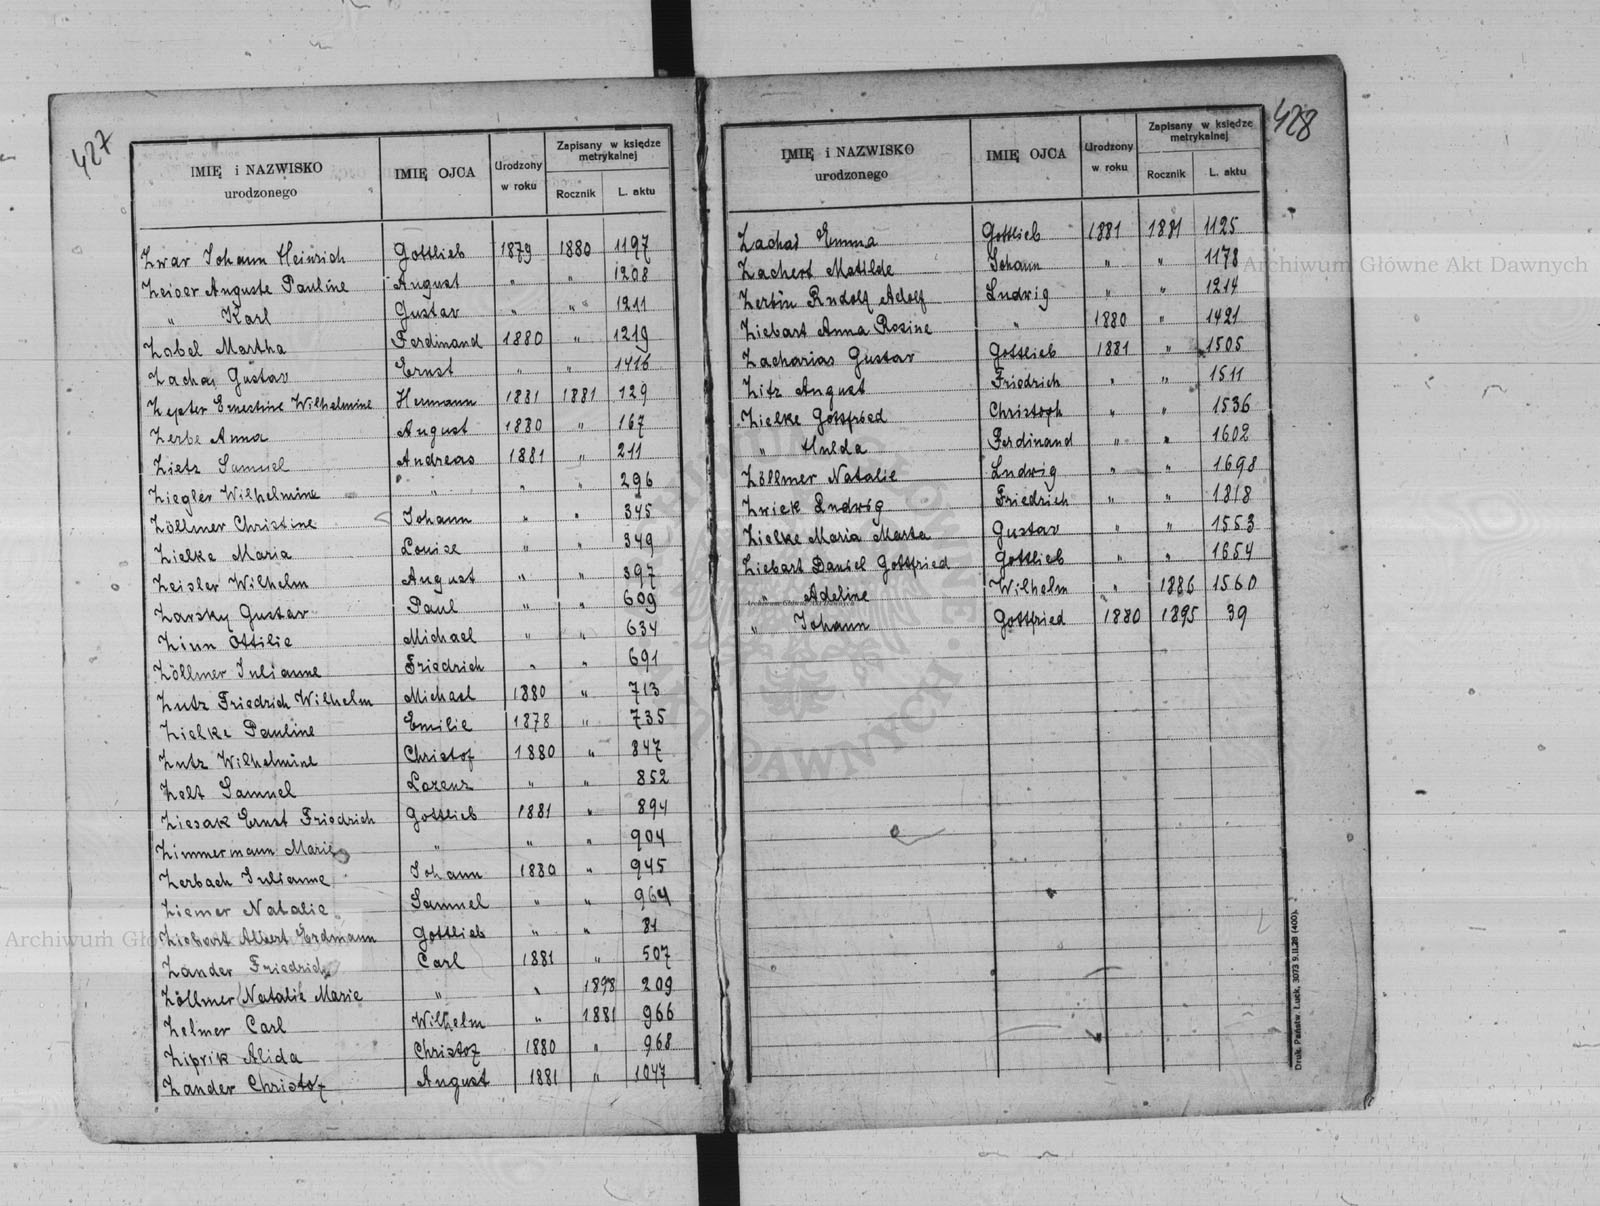 427
IMIĘ i NAZWISKO urodzonego IMIĘ OJCA Urodzony w roku Zapisany w księdze metrykalnej Rocznik L. aktu
Zwar Johann Heinrich Gottlieb 1879 1880 1197
Zeiser Auguste Pauline August " " 1208
" Karl Gustav " " 1211
Zobel Martha Ferdinand 1880 " 1219
Zachaj Gustav Ernst " " 1416
Zepter Ernestine Wilhelmine Hermann 1881 1881 129
Zerbe Anna August 1880 " 167
Zietz Samuel Andreas 1881 " 211
Ziegler Wilhelmine " " " 296
Zöllmer Christine Johann " " 345
Zielke Maria Louise " " 349
Zeisler Wilhelm August " " 397
Zarsky Gustav Paul " " 609
Zinn Ottilie Michael " " 634
Zöllmer Julianne Friedrich " " 691
Zutz Friedrich Wilhelm Michael 1880 " 713
Zielke Pauline Emilie 1878 " 735
Zutz Wilhelmine Christof 1880 " 847
Zelt Samuel Lorenz " " 852
Ziesak Ernst Friedrich Gottlieb 1881 " 894
Zimmermann Marie " " " 904
Zerbach Julianne Johann 1880 " 945
Ziemer Natalie Samuel " " 964
Ziebart Albert Erdmann Gottlieb " " 81
Zander Friedrich Carl 1881 " 507
Zöllmer Natalie Marie " " 1898 209
Zelmer Carl Wilhelm " 1881 966
Ziprik Alida Christof 1880 " 968
Zander Christof August 1881 " 1047
428
IMIĘ i NAZWISKO urodzonego IMIĘ OJCA Urodzony w roku Zapisany w księdze metrykalnej Rocznik L. aktu
Zachaś Emma Gottlieb 1881 1881 1125
Zachert Matilde Johann " " 1178
Zerbin Rudolf Adolf Ludwig " " 1214
Ziebart Anna Rosine " 1880 " 1421
Zacharias Gustav Gottlieb 1881 " 1505
Zitz August Friedrich " " 1511
Zielke Gottfried Christoph " " 1536
" Hulda Ferdinand " " 1602
Zöllmer Natalie Ludwig " " 1698
Zwiek Ludwig Friedrich " " 1818
Zielke Maria Marta Gustav " " 1553
Ziebart Daniel Gottfried Gottlieb " " 1654
" Adeline Wilhelm " 1886 1560
" Johann Gottfried 1880 1895 39
Druk. Państw. Łuck, 3073 9.II.28 (400).
Archiwum Główne Akt Dawnych
Archiwum Główne Akt Dawnych